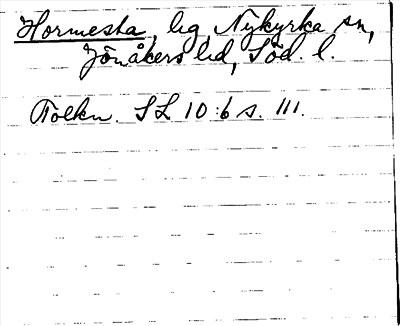 Hormesta, lig, Nykyrka sn,
Jönåkers hd, Söd. l.
Tolkn. SL 10:6 s. 111.